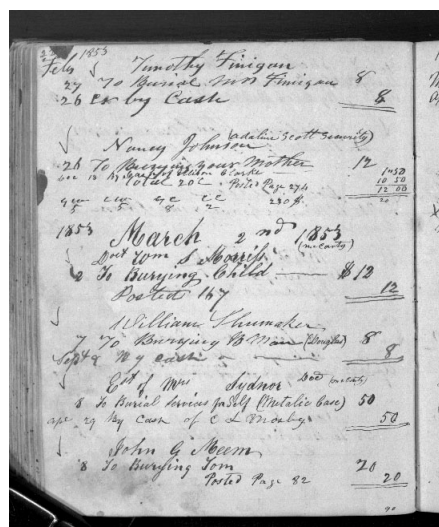 1853
Feb Timothy Finigan
27 To Burial Mrs Finigan 8
28 Cr by Cash 8
Nancy Johnson (Adaline Scott Security)
28 To Burying your Mother 12
Clarke 1.50
Total 10 50
Posted Page 274 12 00
1853 March 2nd 1853
Doct Tom S Morriss (McCarty)
2 To Burying Child $12
Posted 167 12
William Shumaker
7 To Burying B Man (Douglas) 8
Sept 2 By cash 8
Est of Mrs Sydnor Decd (McCarty)
8 To Burial Services for Self (Metalic Case) 50
Apr 29 By Cash of C L Mosby 50
John G Meem
8 To Burying Tom 20
Posted Page 82 20